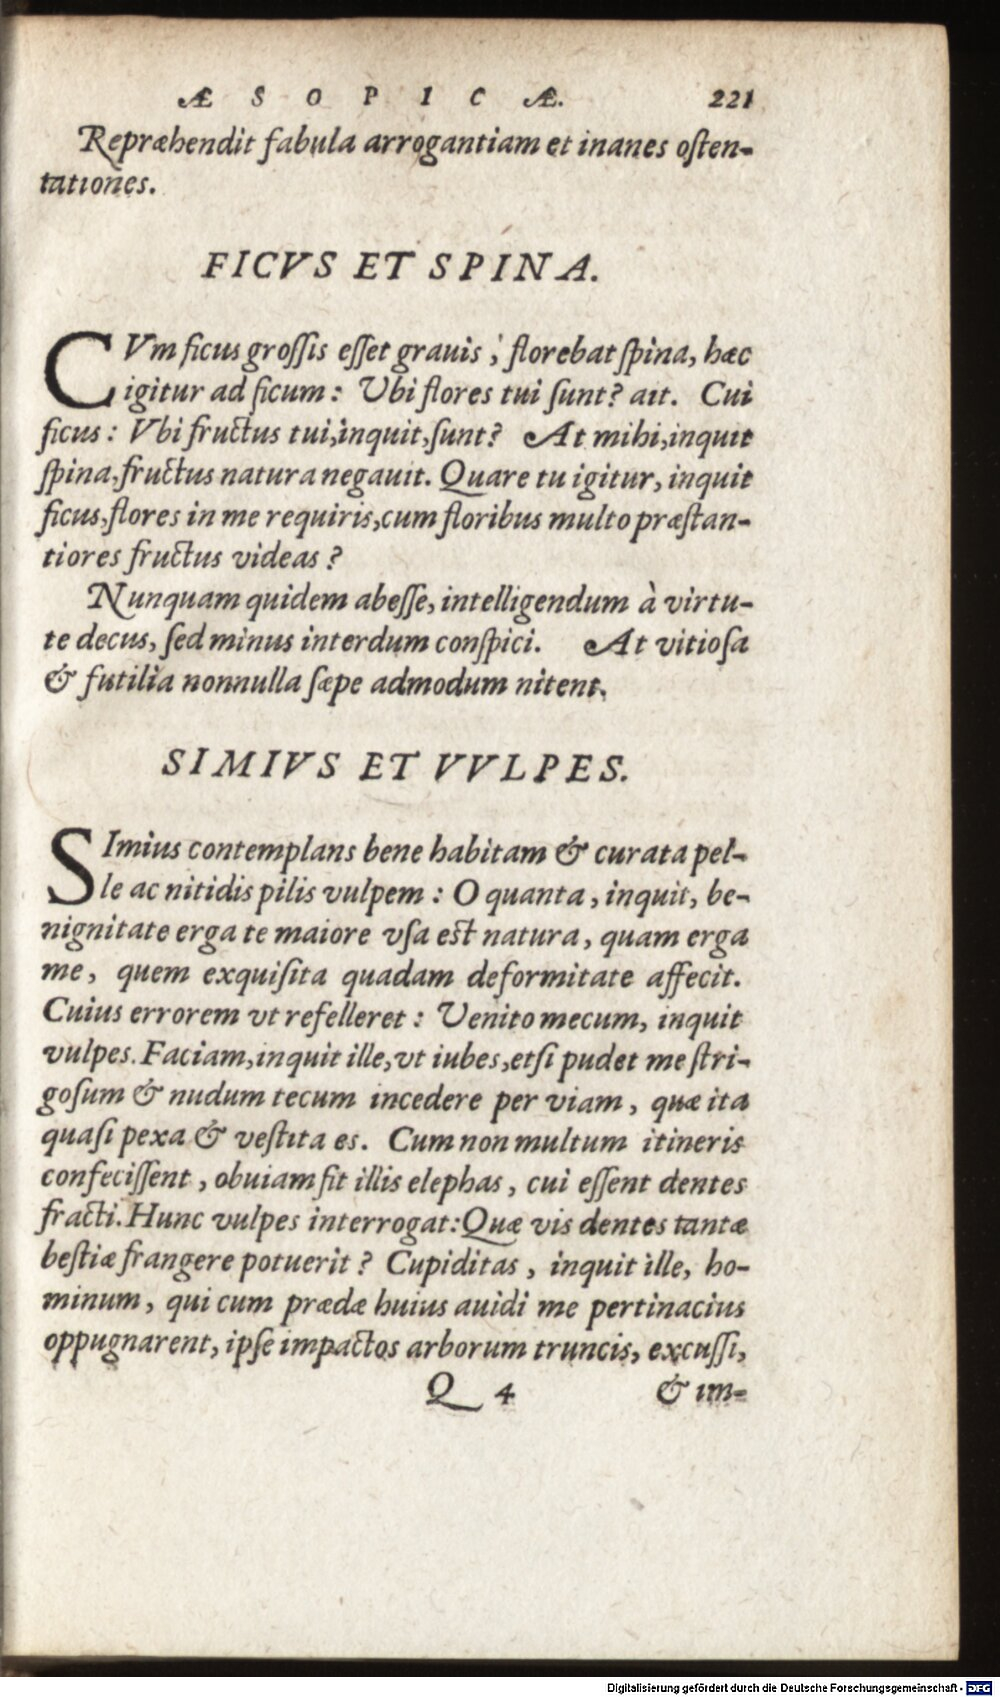 ÆSOPICÆ. 221
Repræhendit fabula arrogantiam et inanes osten-
tationes.
FICVS ET SPINA.
CVm ficus grossis esset grauis, florebat spina, hæc
igitur ad ficum: Ubi flores tui sunt? ait. Cui
ficus: Vbi fructus tui, inquit, sunt? At mihi, inquit
spina, fructus natura negauit. Quare tu igitur, inquit
ficus, flores in me requiris, cum floribus multo præstan-
tiores fructus videas?
Nunquam quidem abesse, intelligendum à virtu-
te decus, sed minus interdum conspici. At vitiosa
& futilia nonnulla sæpe admodum nitent.
SIMIVS ET VVLPES.
SImius contemplans bene habitam & curata pel-
le ac nitidis pilis vulpem: O quanta, inquit, be-
nignitate erga te maiore vsa est natura, quam erga
me, quem exquisita quadam deformitate affecit.
Cuius errorem vt refelleret: Uenito mecum, inquit
vulpes. Faciam, inquit ille, vt iubes, etsi pudet me stri-
gosum & nudum tecum incedere per viam, quæ ita
quasi pexa & vestita es. Cum non multum itineris
confecissent, obuiam fit illis elephas, cui essent dentes
fracti. Hunc vulpes interrogat: Quæ vis dentes tantæ
bestiæ frangere potuerit? Cupiditas, inquit ille, ho-
minum, qui cum prædæ huius auidi me pertinacius
oppugnarent, ipse impactos arborum truncis, excussi,
Q 4 & im-
Digitalisierung gefördert durch die Deutsche Forschungsgemeinschaft - DFG